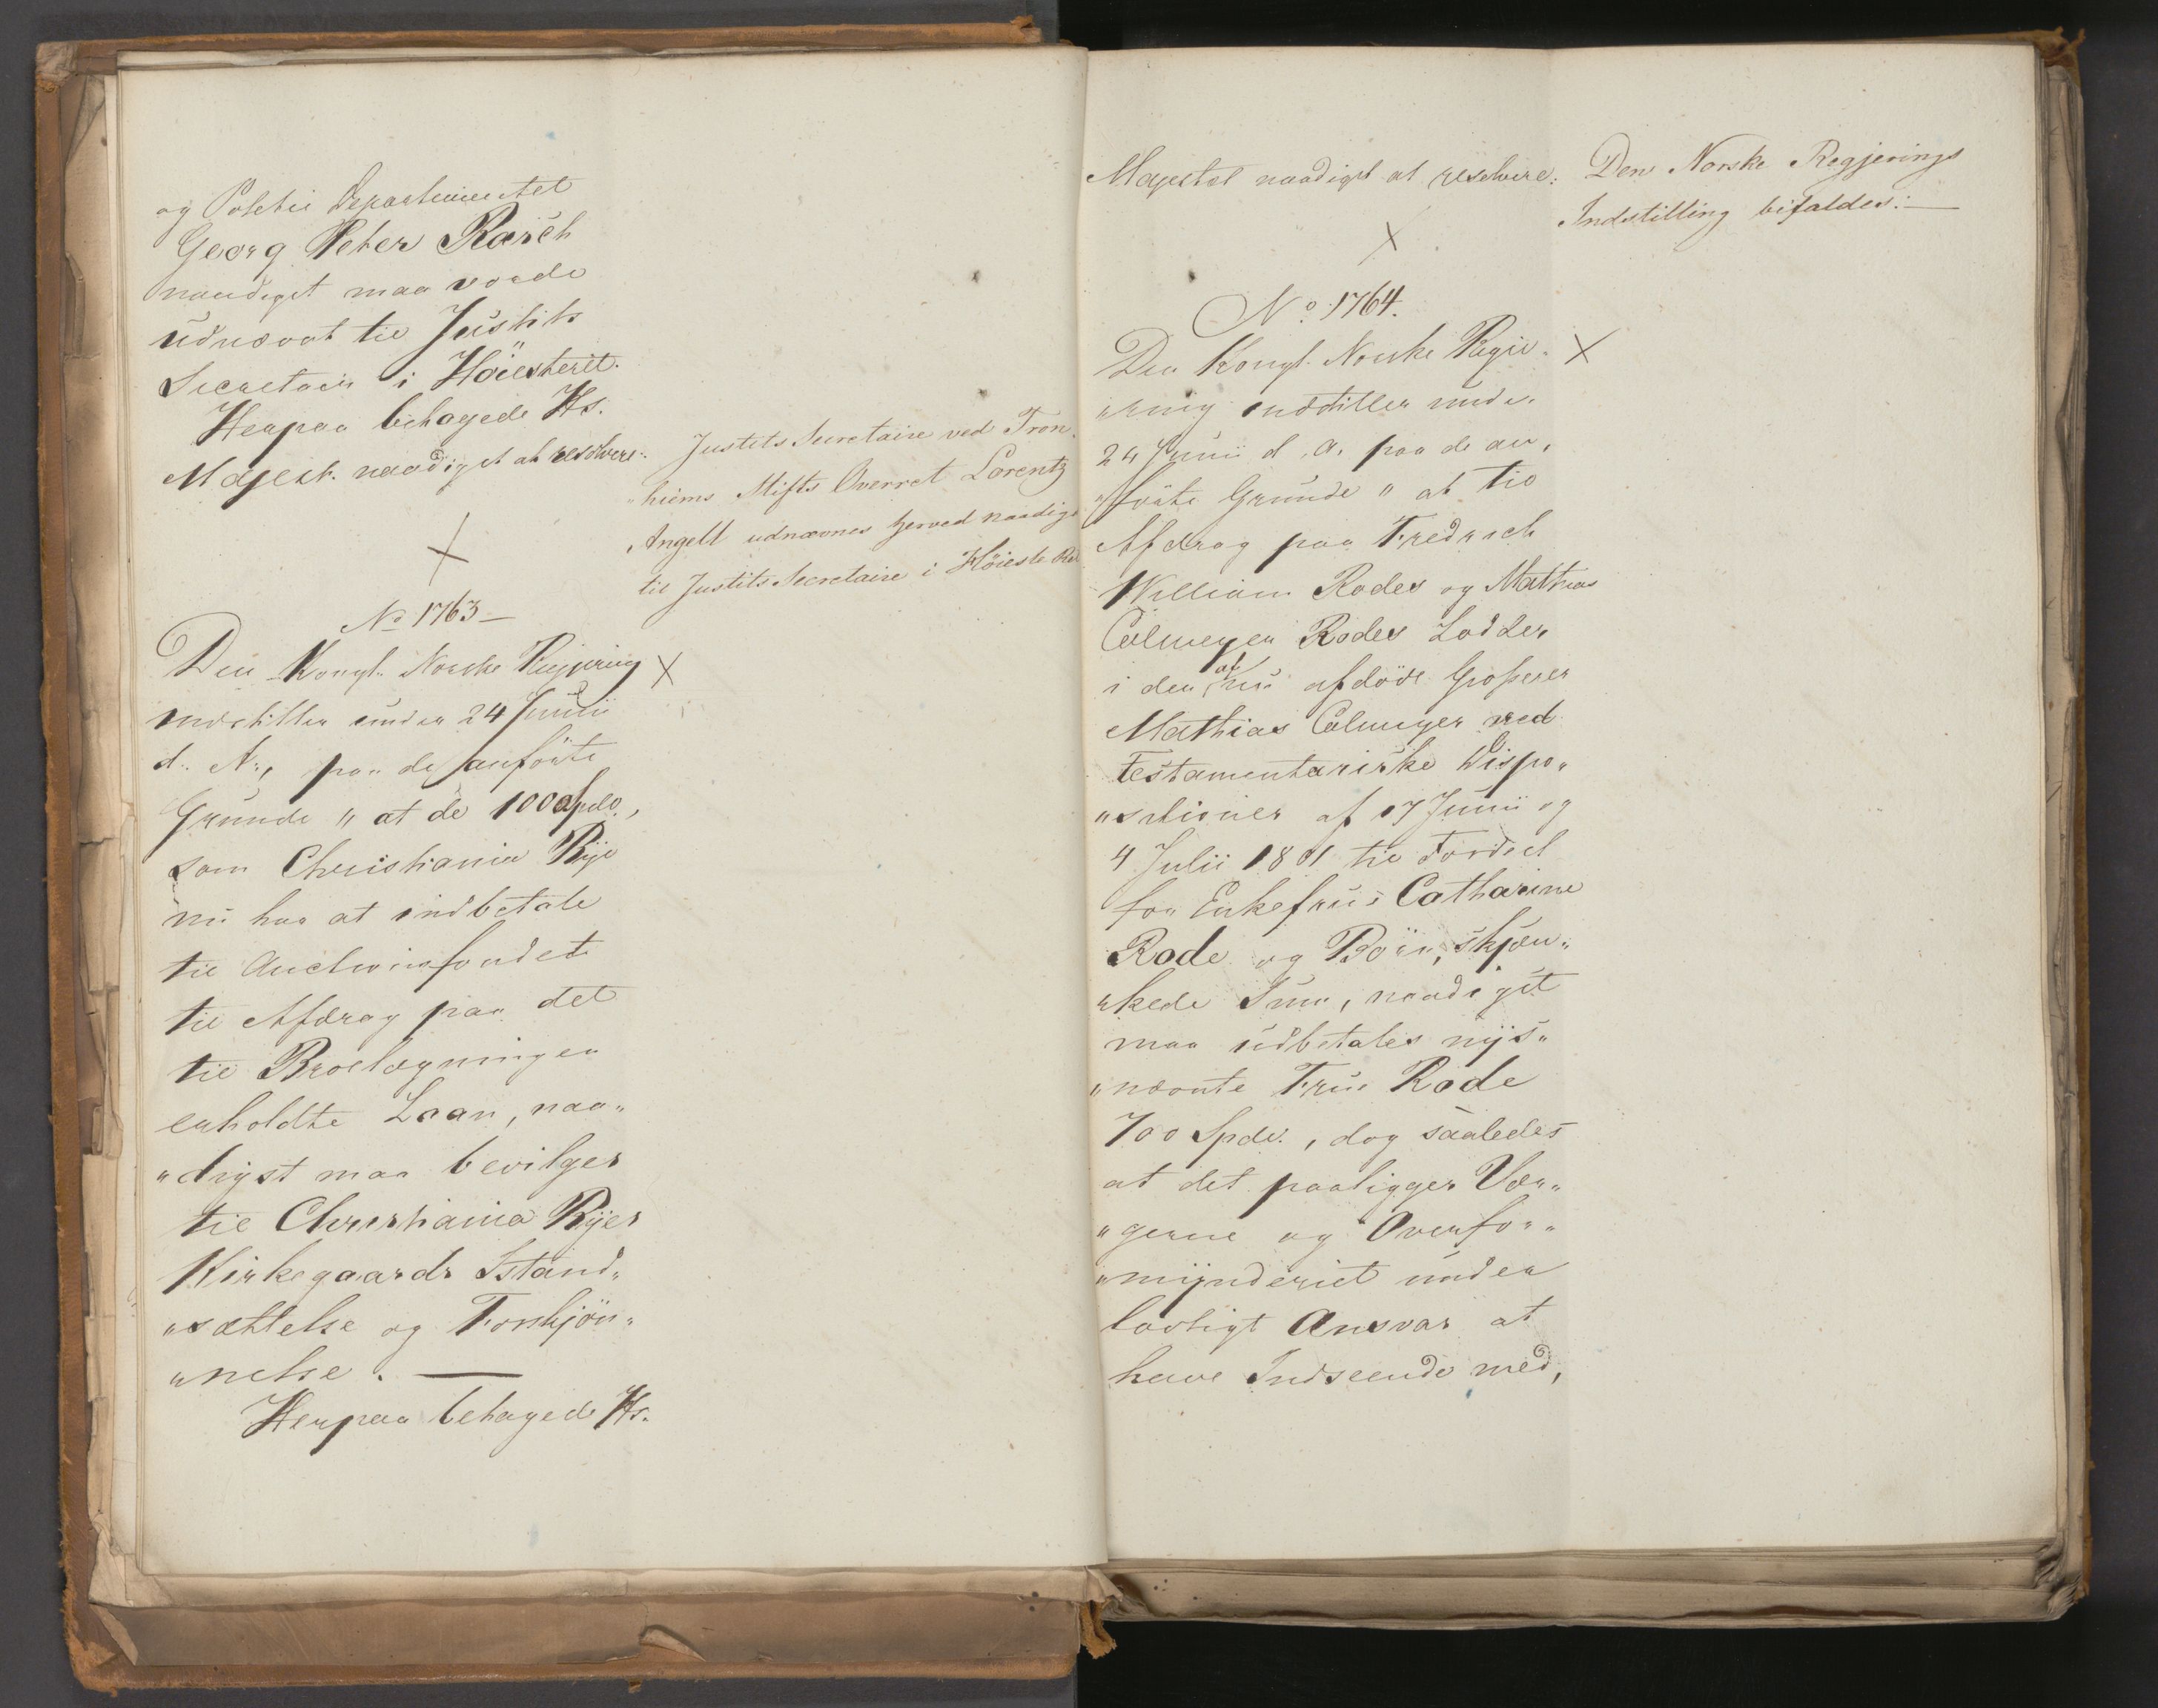 og Politie Departementet
Georg Peter Rasch
naadigst maa vorde
udnævnt til Justits
Secretair i Höiesteret.
Herpaa behagede Hs.
Majest. naadigst at resolvere:
Justits Secretaire ved Tron,
"hiems Stifts Overret Lorentz
Angell udnævnes herved naadigs
til Justits Secretaire i Höieste Ret
No 1763 —
Den Kongl. Norske Regjering
indstiller under 24 Junii
d. A., paa de anförte
Grunde " at de 100 Spd.,
som Christiania Bye
nu har at indbetale
til Auctionsfondet
til Afdrag paa det
til Broelægningen
erholdte Laan, naa"
"digst maa bevilges
til Christiania Byes
Kirkegaards Istand"
"sættelse og Forskjön"
"nelse. —
Herpaa behagede Hs.
Majestæt naadigst at resolvere:
Den Norske Regjerings
Indstilling bifaldes: —
No 1764.
Den Kongl. Norske Regie"
"ring indstiller under
24 Junii d. A. paa de an,
"förte Grunde " at til
Afdrag paa Fredrich
William Rodes og Mathias
Calmeyer Rodes Lodder
i den af nu afdöde Grosserer
Mathias Calmeyer ved
testamentariske Dispo"
"sitioner af 17 Junii og
4 Julii 1801 til Fordeel
for Enkefrue Catharine
Rode og Börn, skjæn"
"kede Sum, naadigst
maa udbetales nys"
"nævnte Frue Rode
700 Spd., dog saaledes
at det paaligger Vær"
"gerne og Overfor"
"mynderiet under
lovligt Ansvar at
have Indseende med,